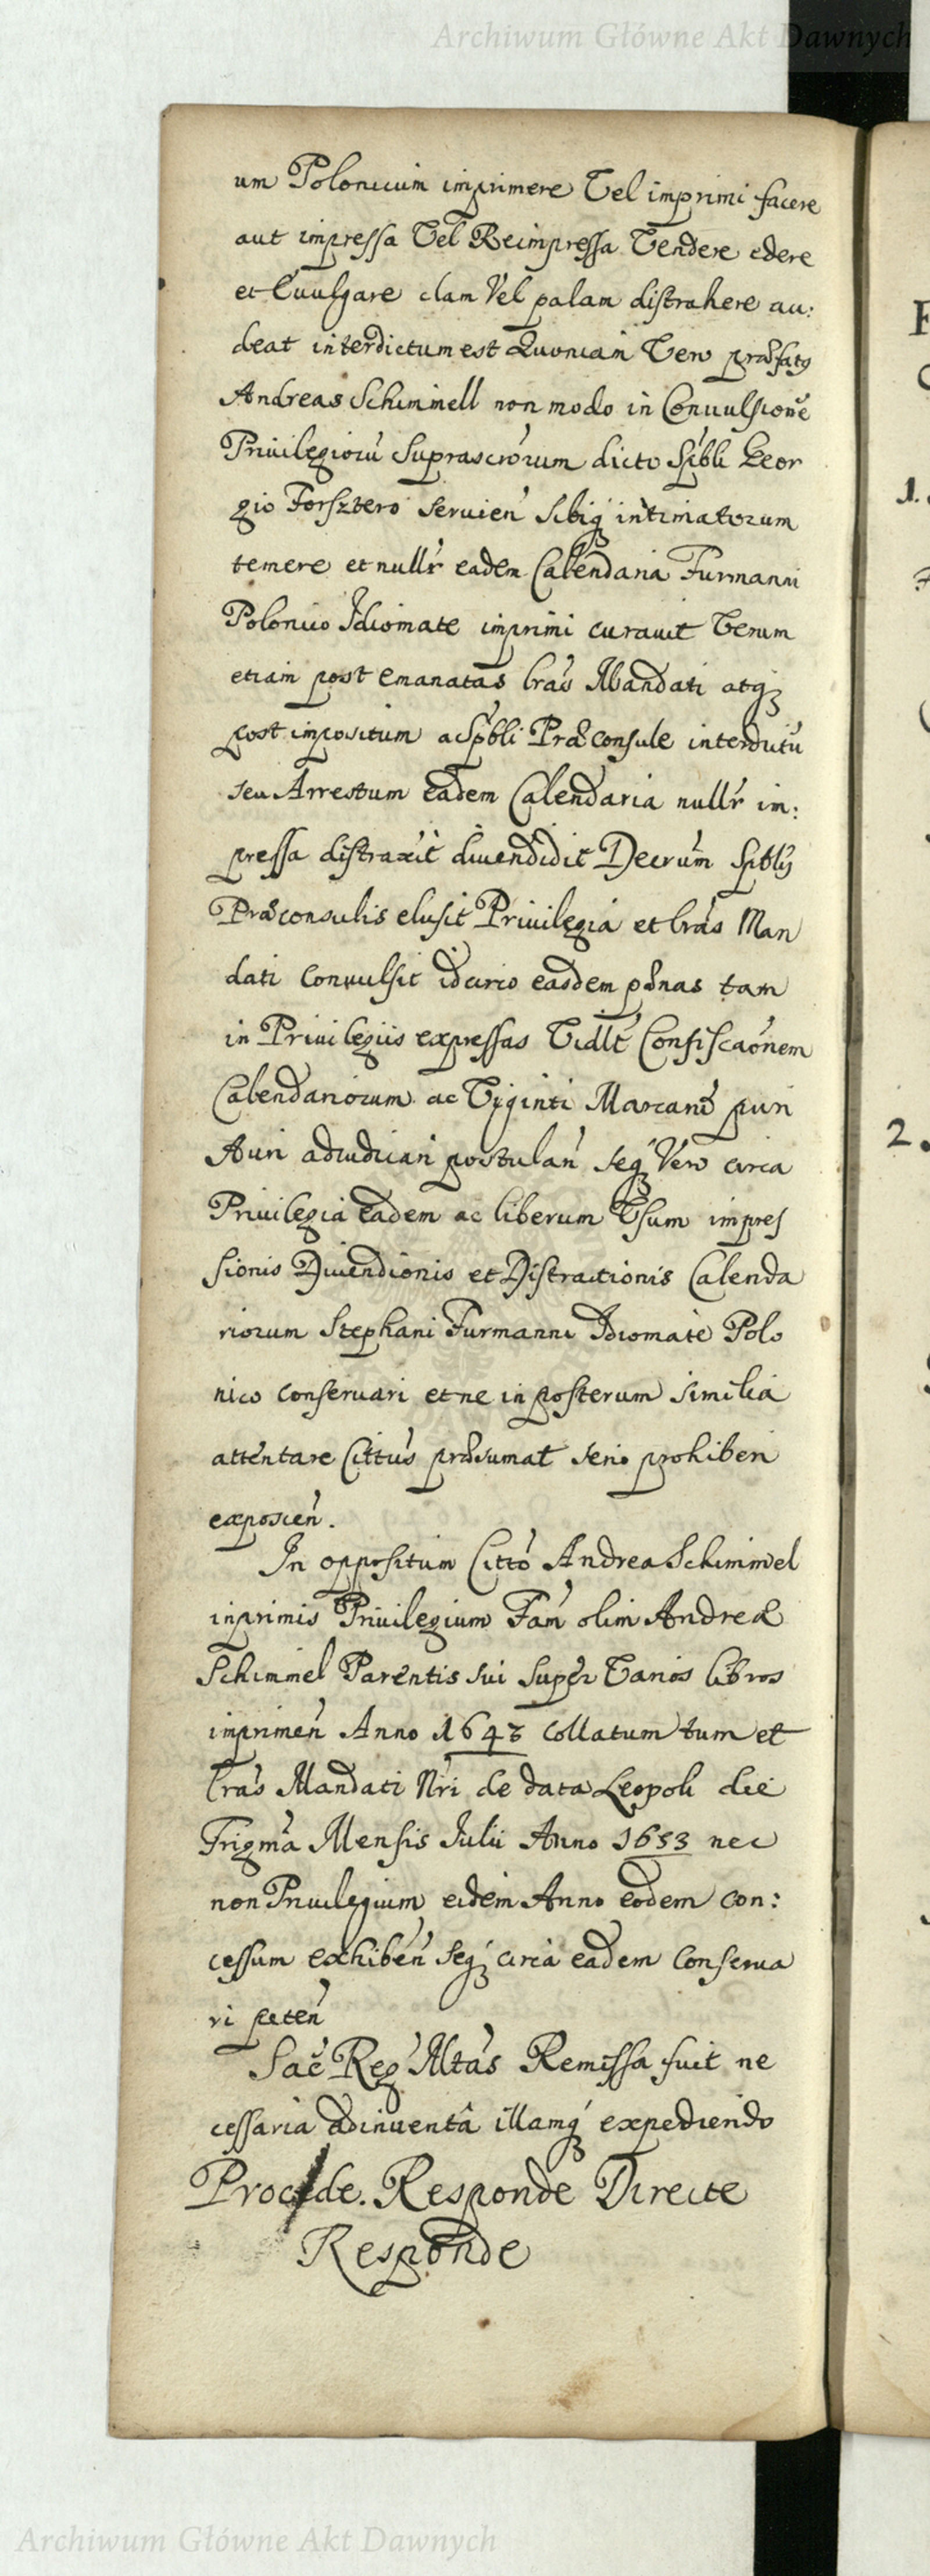 Archiwum Główne Akt Dawnych
um Polonicum imprimere Vel imprimi facere
aut impressa Vel Reimpressa Vendere edere
et Euulgare clam Vel palam distrahere au:
deat interdictum est Quoniam Vero præfatq
Andreas Schimmell non modo in Convulsione
Priuilegioru Suprascrorum dicto Spbli Geor
gio Forsztero seruien sibiq intimatorum
temere et nullr eadem Calendaria Furmanni
Polonico Idiomate imprimi curauit Verum
etiam post emanatas lras Mandati atq
post impositum a Spbli Præconsule interdictu
seu Arrestum eadem Calendaria nullr im:
pressa distraxit diuendidit Decrum Spblis
Præconsulis elusit Priuilegia et lras Man
dati Conuulsit idcirco easdem pænas tam
in Priuilegiis expressas Vidlt Confiscaonem
Calendariorum ac Viginti Marcaru puri
Auri adiudicari postulan seq Vero circa
Priuilegia eadem ac liberum Vsum impres
sionis Diuendionis et Distractionis Calenda
riorum Stephani Furmanni Idiomate Polo
nico conseruari et ne in posterum similia
attentare Cittus præsumat serio prohiberi
exposcen.
In oppositum Citto Andrea Schimmel
inprimis Priuilegium Fam olim Andreæ
Schimmel Parentis sui super Varios libros
imprimen Anno 1643 collatum tum et
lras Mandati Nri de data Leopoli die
Trigma Mensis Julii Anno 1653 nec
non Priuilegium eidem Anno eodem con:
cessum exhiben seq circa eadem Conserua
ri peten
Sac Reg Mltas Remissa fuit ne
cessaria adinuenta illamq expediendo
Procede. Responde Directe
Responde
1.
2.
Archiwum Główne Akt Dawnych